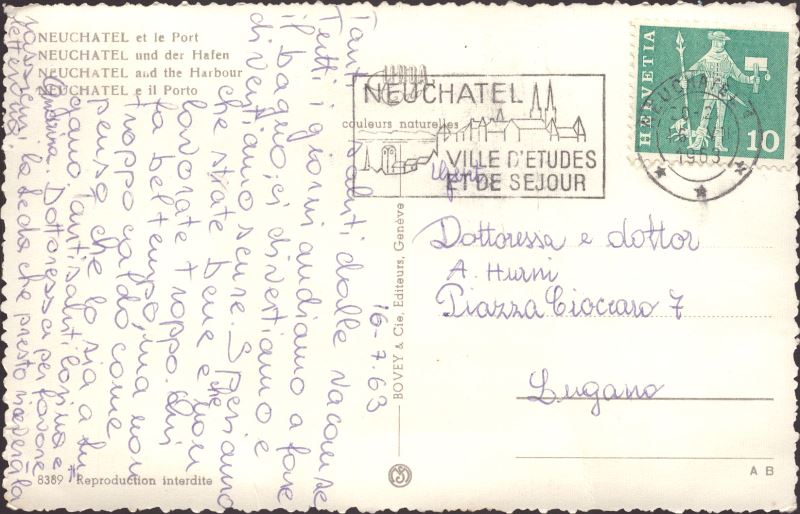 NEUCHATEL et le Port
NEUCHATEL und der Hafen
NEUCHATEL and the Harbour
NEUCHATEL e il Porto
couleurs naturelles
NEUCHATEL
VILLE D'ETUDES
ET DE SEJOUR
NEUCHATEL 1
1963
HELVETIA
10
16-7.63
Tanti saluti dalle vacanze
Tutti i giorni andiamo a fare
il bagno, ci divertiamo e
diventiamo nere. Speriamo
che state bene e che non
lavorate troppo. Qui
fa bel tempo, ma non
troppo caldo come
penso che lo sia a Lu
gano. Tanti saluti Rosina e
Dottoressa per favore
possa
lettera
Urgente
Dottoressa e dottor
A. Hurni
Piazza Cioccaro 7
Lugano
BOVEY & Cie, Editeurs, Genève
8389 Reproduction interdite
A B